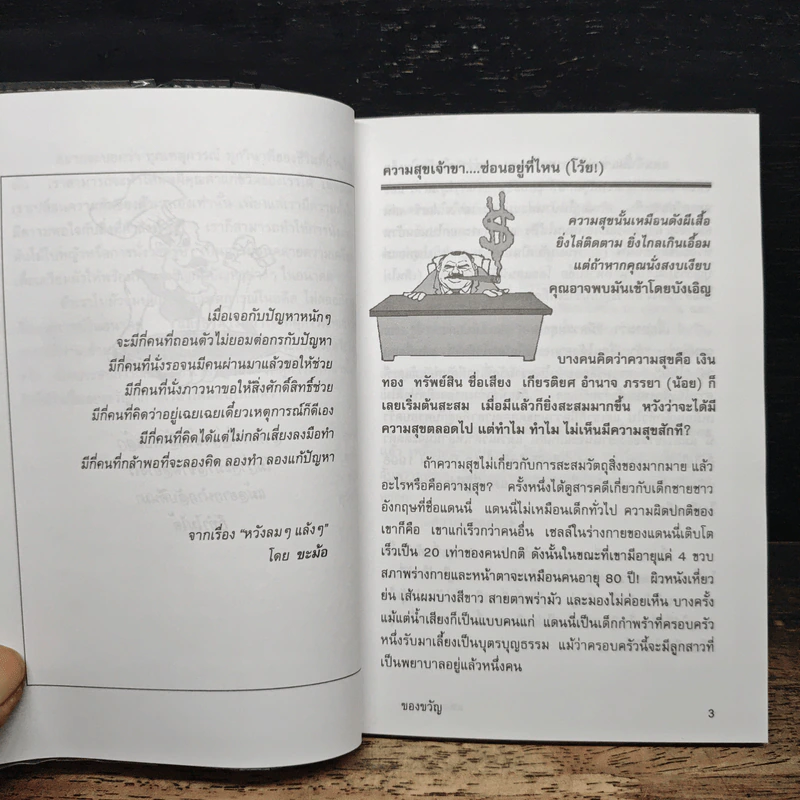 เมื่อเจอกับปัญหาหนักๆ
จะมีกี่คนที่ถอนตัวไม่ยอมต่อกรกับปัญหา
มีกี่คนที่นั่งรอจนมีคนผ่านมาแล้วขอให้ช่วย
มีกี่คนที่นั่งภาวนาขอให้สิ่งศักดิ์สิทธิ์ช่วย
มีกี่คนที่คิดว่าอยู่เฉยเฉยเดี๋ยวเหตุการณ์ก็ดีเอง
มีกี่คนที่คิดได้แต่ไม่กล้าเสี่ยงลงมือทำ
มีกี่คนที่กล้าพอที่จะลองคิด ลองทำ ลองแก้ปัญหา
จากเรื่อง "หวังลมๆ แล้งๆ"
โดย ขะม้อ
ความสุขเจ้าขา....ซ่อนอยู่ที่ไหน (โว้ย!)
ความสุขนั้นเหมือนดังผีเสื้อ
ยิ่งไล่ติดตาม ยิ่งไกลเกินเอื้อม
แต่ถ้าหากคุณนั่งสงบเงียบ
คุณอาจพบมันเข้าโดยบังเอิญ
บางคนคิดว่าความสุขคือ เงิน
ทอง ทรัพย์สิน ชื่อเสียง เกียรติยศ อำนาจ ภรรยา (น้อย) ก็
เลยเริ่มต้นสะสม เมื่อมีแล้วก็ยิ่งสะสมมากขึ้น หวังว่าจะได้มี
ความสุขตลอดไป แต่ทำไม ทำไม ไม่เห็นมีความสุขสักที?
ถ้าความสุขไม่เกี่ยวกับการสะสมวัตถุสิ่งของมากมาย แล้ว
อะไรหรือคือความสุข? ครั้งหนึ่งได้ดูสารคดีเกี่ยวกับเด็กชายชาว
อังกฤษที่ชื่อแดนนี่ แดนนี่ไม่เหมือนเด็กทั่วไป ความผิดปกติของ
เขาก็คือ เขาแก่เร็วกว่าคนอื่น เซลล์ในร่างกายของแดนนี่เติบโต
เร็วเป็น 20 เท่าของคนปกติ ดังนั้นในขณะที่เขามีอายุแค่ 4 ขวบ
สภาพร่างกายและหน้าตาจะเหมือนคนอายุ 80 ปี! ผิวหนังเหี่ยว
ย่น เส้นผมบางสีขาว สายตาพร่ามัว และมองไม่ค่อยเห็น บางครั้ง
แม้แต่น้ำเสียงก็เป็นแบบคนแก่ แดนนี่เป็นเด็กกำพร้าที่ครอบครัว
หนึ่งรับมาเลี้ยงเป็นบุตรบุญธรรม แม้ว่าครอบครัวนี้จะมีลูกสาวที่
เป็นพยาบาลอยู่แล้วหนึ่งคน
ของขวัญ
3